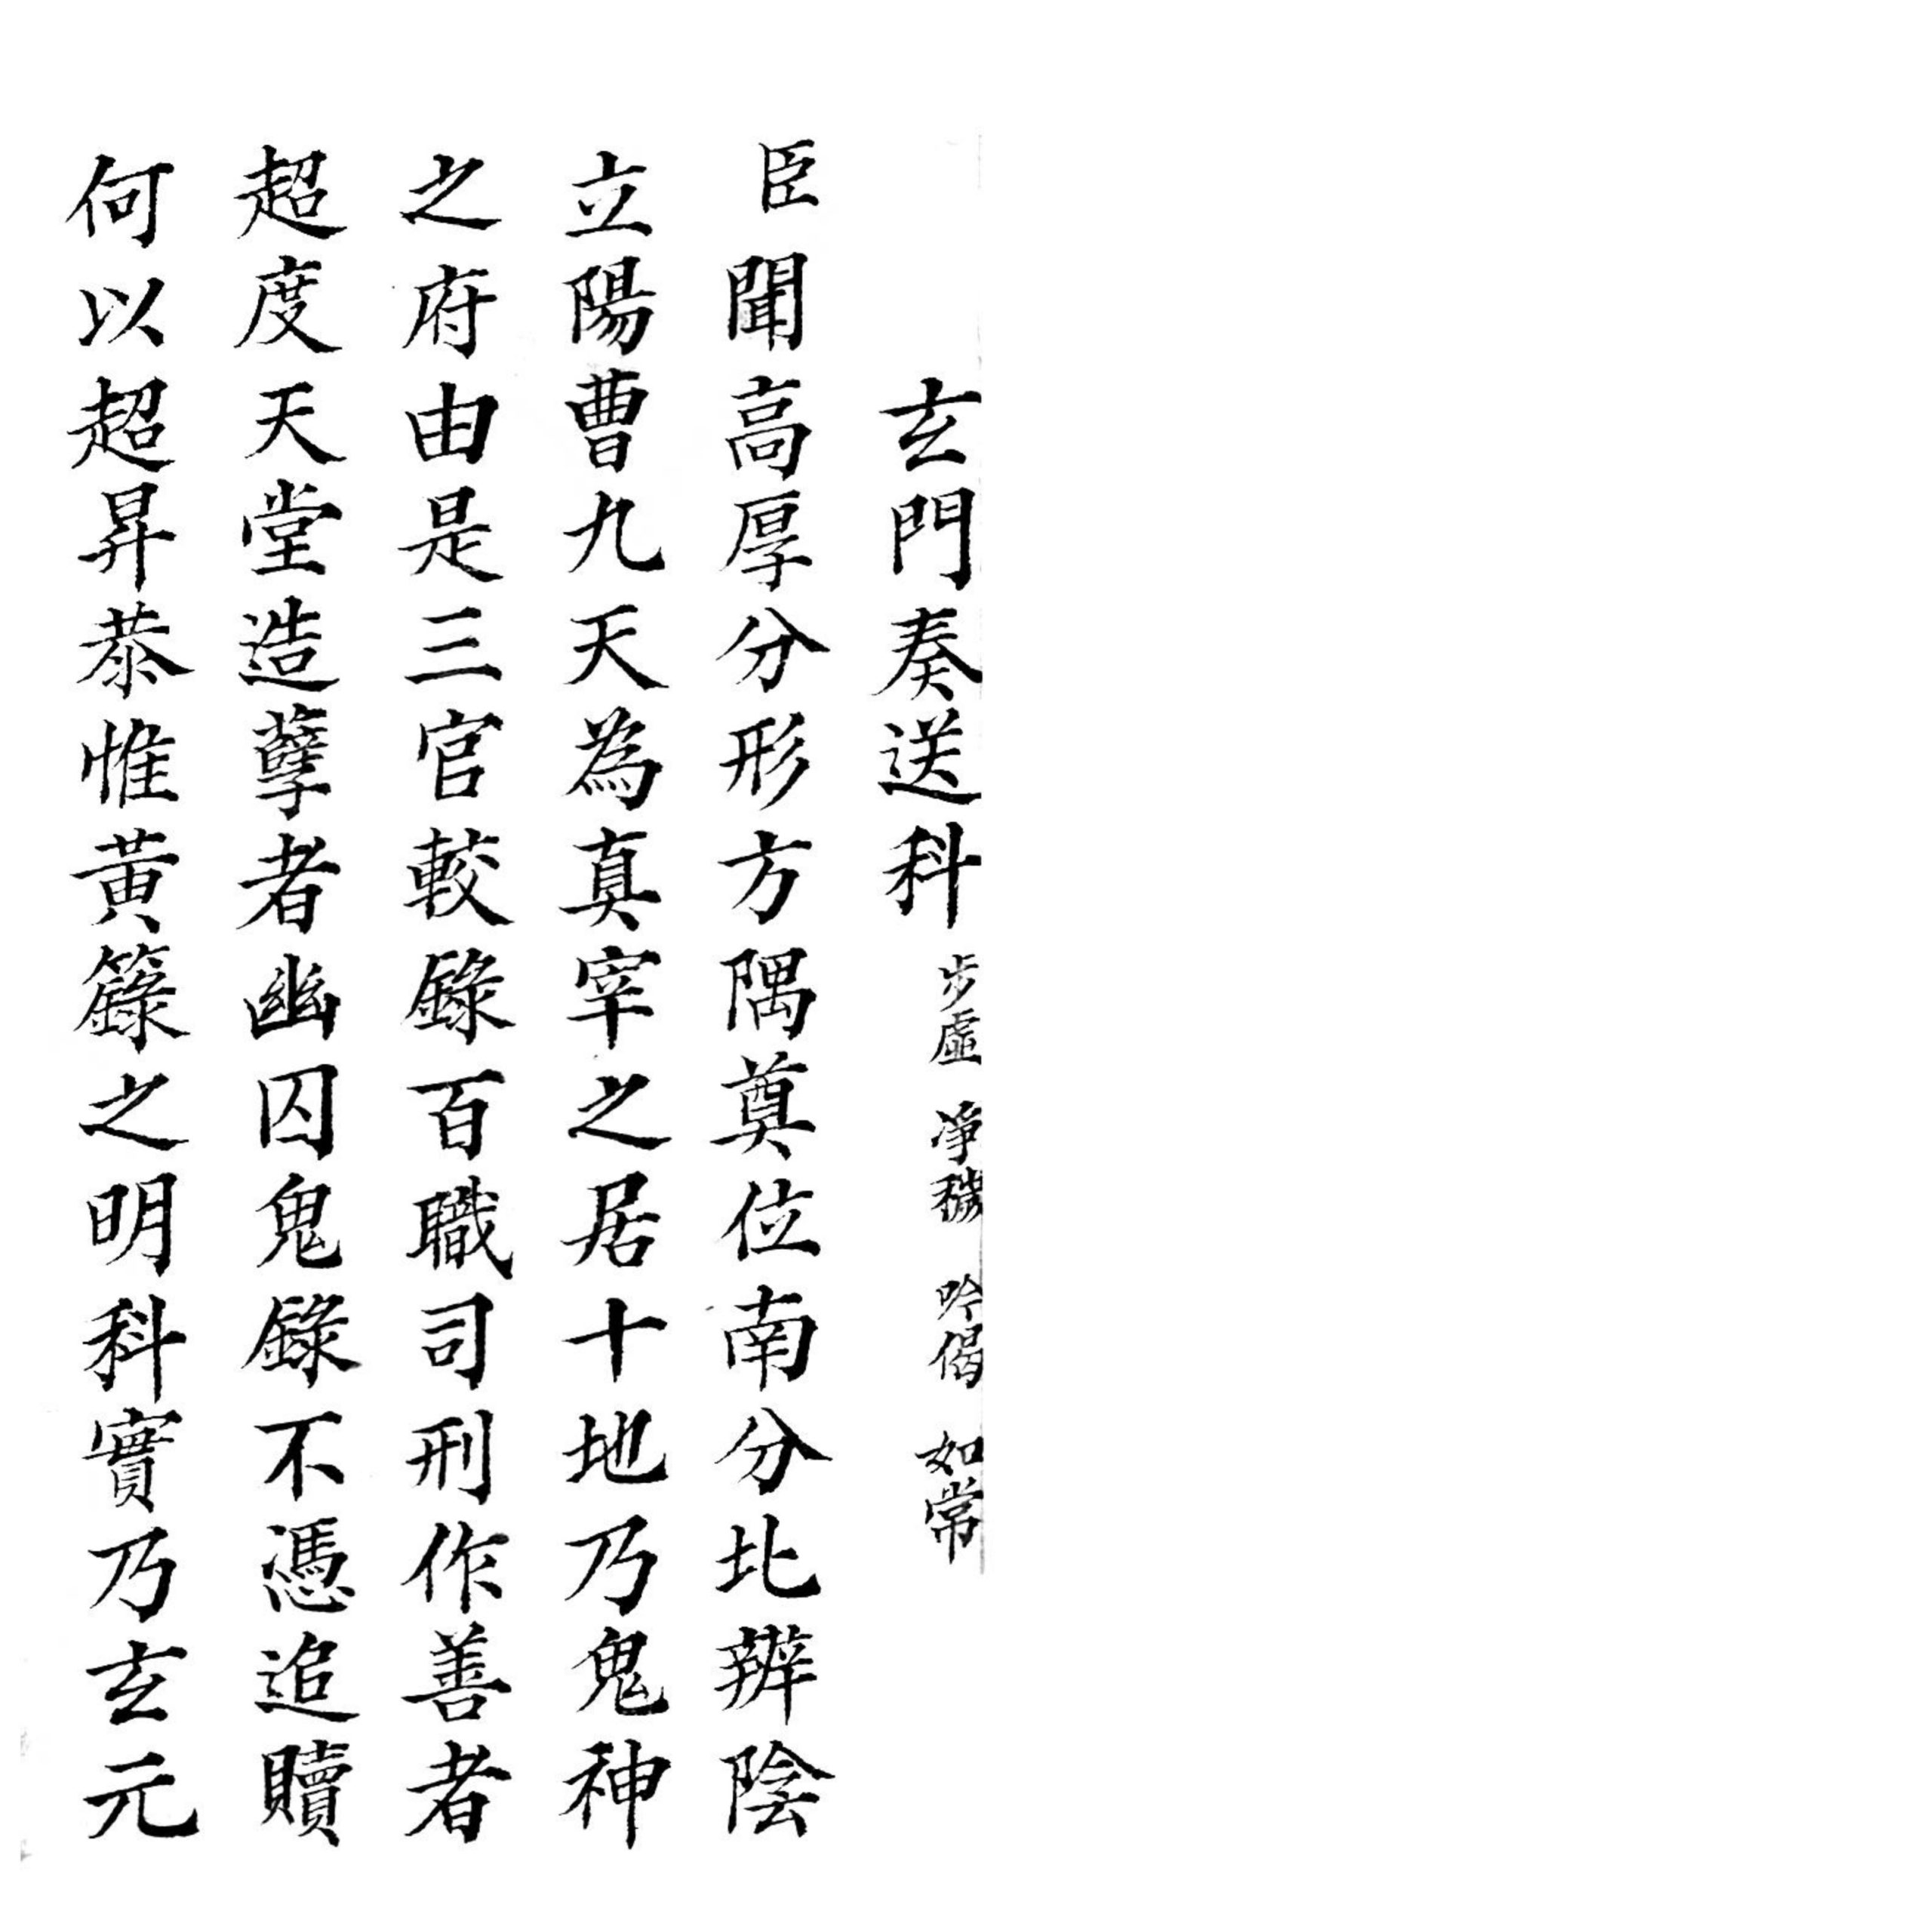 玄門奏送科 步虛 淨穢 吟偈 如常
臣聞高厚分形方隅奠位南分北辨陰
立陽曹九天為真宰之居十地乃鬼神
之府由是三官較錄百職司刑作善者
超度天堂造孽者幽囚鬼錄不憑追贖
何以超昇恭惟黃籙之明科實乃玄元